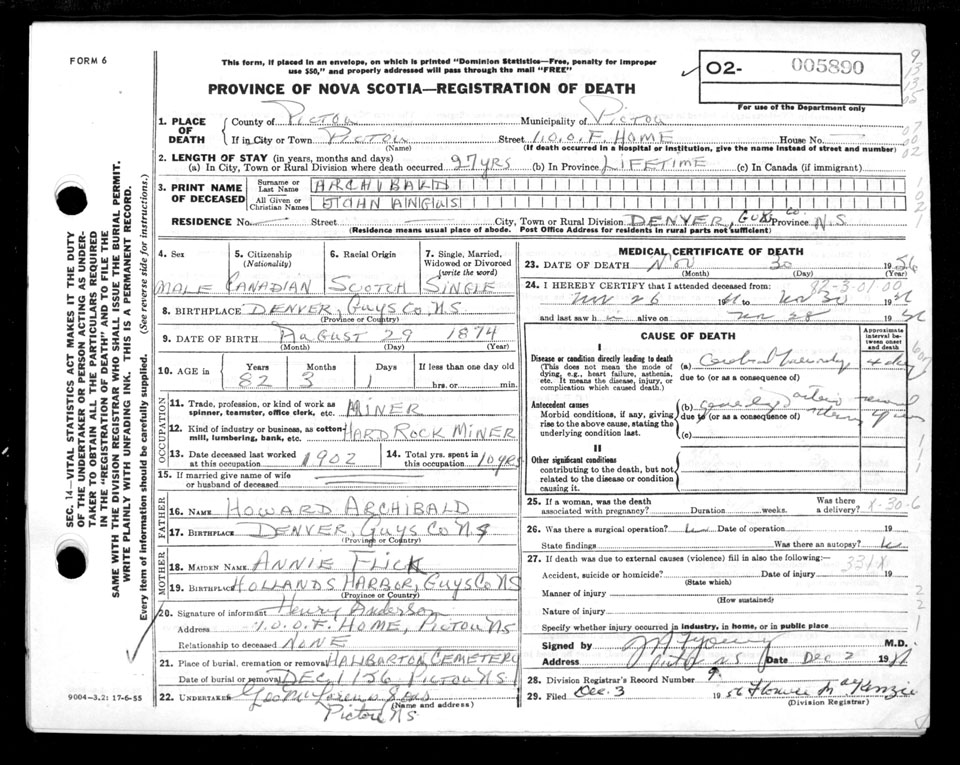 FORM 6
This form, if placed in an envelope, on which is printed "Dominion Statistics—Free, penalty for improper
use $50," and properly addressed will pass through the mail "FREE"
02- 005890
For use of the Department only
PROVINCE OF NOVA SCOTIA—REGISTRATION OF DEATH
1. PLACE OF DEATH
County of PICTOU Municipality of PICTOU
If in City or Town PICTOU Street I.O.O.F. HOME House No.
(Name) (If death occurred in a Hospital or Institution, give the name instead of street and number)
2. LENGTH OF STAY (in years, months and days)
(a) In City, Town or Rural Division where death occurred 27 YRS (b) In Province LIFETIME (c) In Canada (if immigrant)
3. PRINT NAME OF DECEASED
Surname or Last Name ARCHIBALD
All Given or Christian Names JOHN ANGUS
RESIDENCE No. Street City, Town or Rural Division DENVER, GUYS Co. Province N.S
(Residence means usual place of abode. Post Office Address for residents in rural parts not sufficient)
4. Sex 5. Citizenship (Nationality) 6. Racial Origin 7. Single, Married, Widowed or Divorced (write the word)
MALE CANADIAN SCOTCH SINGLE
8. BIRTHPLACE DENVER, GUYS CO, NS
(Province or Country)
9. DATE OF BIRTH AUGUST 29 1874
(Month) (Day) (Year)
10. AGE in Years Months Days If less than one day old
82 3 1 hrs. or min.
OCCUPATION
11. Trade, profession, or kind of work as spinner, teamster, office clerk, etc. MINER
12. Kind of industry or business, as cotton-mill, lumbering, bank, etc. HARD ROCK MINER
13. Date deceased last worked at this occupation 1902 14. Total yrs. spent in this occupation 10 YRS
15. If married give name of wife or husband of deceased
FATHER
16. NAME HOWARD ARCHIBALD
17. BIRTHPLACE DENVER, GUYS CO NS
(Province or Country)
MOTHER
18. MAIDEN NAME ANNIE FLICK
19. BIRTHPLACE HOLLANDS HARBOR, GUYS CO NS
(Province or Country)
20. Signature of informant Henry Anderson
Address I.O.O.F. HOME, PICTOU NS
Relationship to deceased NONE
21. Place of burial, cremation or removal HALIBARTON CEMETERY
Date of burial or removal DEC 1 1956 PICTOU NS
22. UNDERTAKER
(Name and address)
Pictou NS
9004—3.2: 17-6-55
SEC. 14—VITAL STATISTICS ACT MAKES IT THE DUTY
OF THE UNDERTAKER OR PERSON ACTING AS UNDER-
TAKER TO OBTAIN ALL THE PARTICULARS REQUIRED
IN THE "REGISTRATION OF DEATH" AND TO FILE THE
SAME WITH THE DIVISION REGISTRAR WHO SHALL ISSUE THE BURIAL PERMIT.
WRITE PLAINLY WITH UNFADING INK. THIS IS A PERMANENT RECORD.
Every item of information should be carefully supplied. (See reverse side for instructions.)
MEDICAL CERTIFICATE OF DEATH
23. DATE OF DEATH Nov 30 1956
(Month) (Day) (Year)
24. I HEREBY CERTIFY that I attended deceased from:
Nov 26 19 to Nov 30 19
and last saw h alive on Nov 28 19
CAUSE OF DEATH
Approximate interval between onset and death
I
Disease or condition directly leading to death
(This does not mean the mode of dying, e.g., heart failure, asthenia, etc. It means the disease, injury, or complication which caused death.)
(a) 4 days
due to (or as a consequence of)
Antecedent causes
Morbid conditions, if any, giving rise to the above cause, stating the underlying condition last.
(b) several years
due to (or as a consequence of)
(c)
II
Other significant conditions
contributing to the death, but not related to the disease or condition causing it.
25. If a woman, was the death associated with pregnancy? Duration weeks. Was there a delivery? X-30-6
26. Was there a surgical operation? Date of operation 19
State findings Was there an autopsy?
27. If death was due to external causes (violence) fill in also the following:— 331X
Accident, suicide or homicide? Date of injury 19
(State which)
Manner of injury
(How sustained)
Nature of injury
Specify whether injury occurred in industry, in home, or in public place
Signed by M.D.
Address Pictou N.S Date Dec 2 19
28. Division Registrar's Record Number 9.
29. Filed Dec. 3 1956 Florence MacKenzie
(Division Registrar)